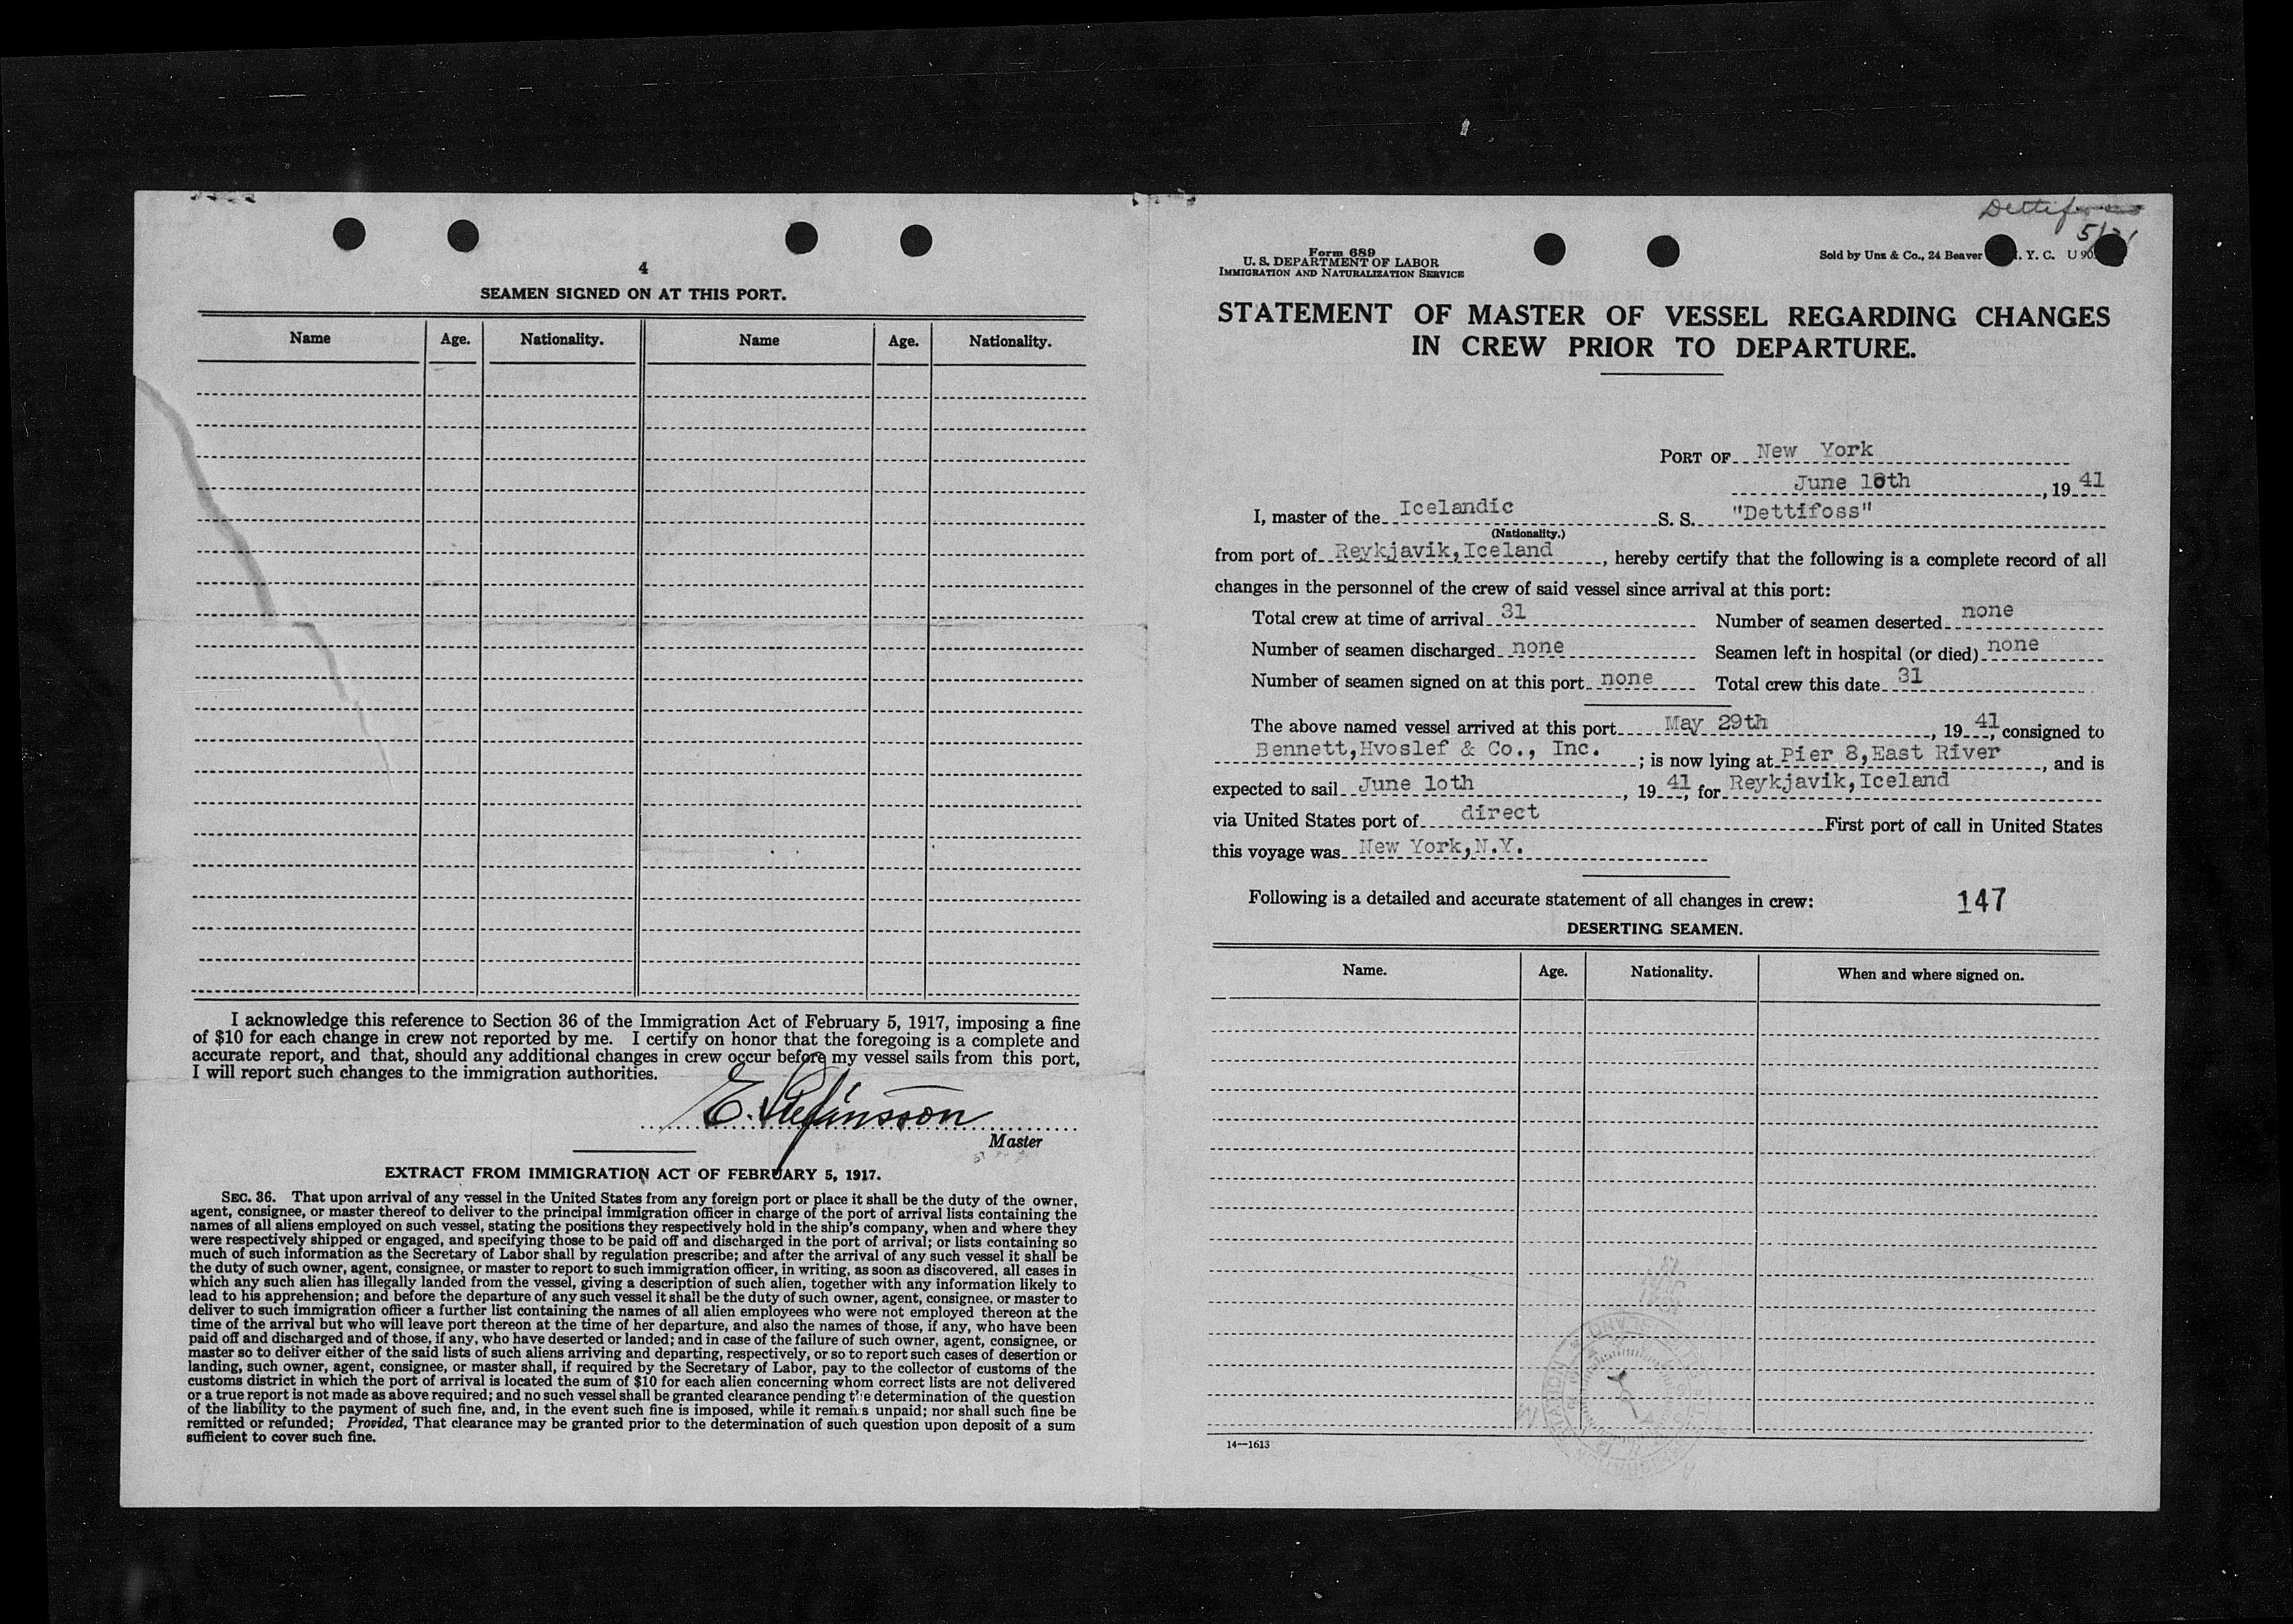 4
SEAMEN SIGNED ON AT THIS PORT.
Name Age. Nationality. Name Age. Nationality.
I acknowledge this reference to Section 36 of the Immigration Act of February 5, 1917, imposing a fine
of $10 for each change in crew not reported by me. I certify on honor that the foregoing is a complete and
accurate report, and that, should any additional changes in crew occur before my vessel sails from this port,
I will report such changes to the immigration authorities.
E. Stefánsson
Master
EXTRACT FROM IMMIGRATION ACT OF FEBRUARY 5, 1917.
SEC. 36. That upon arrival of any vessel in the United States from any foreign port or place it shall be the duty of the owner,
agent, consignee, or master thereof to deliver to the principal immigration officer in charge of the port of arrival lists containing the
names of all aliens employed on such vessel, stating the positions they respectively hold in the ship's company, when and where they
were respectively shipped or engaged, and specifying those to be paid off and discharged in the port of arrival; or lists containing so
much of such information as the Secretary of Labor shall by regulation prescribe; and after the arrival of any such vessel it shall be
the duty of such owner, agent, consignee, or master to report to such immigration officer, in writing, as soon as discovered, all cases in
which any such alien has illegally landed from the vessel, giving a description of such alien, together with any information likely to
lead to his apprehension; and before the departure of any such vessel it shall be the duty of such owner, agent, consignee, or master to
deliver to such immigration officer a further list containing the names of all alien employees who were not employed thereon at the
time of the arrival but who will leave port thereon at the time of her departure, and also the names of those, if any, who have been
paid off and discharged and of those, if any, who have deserted or landed; and in case of the failure of such owner, agent, consignee, or
master so to deliver either of the said lists of such aliens arriving and departing, respectively, or so to report such cases of desertion or
landing, such owner, agent, consignee, or master shall, if required by the Secretary of Labor, pay to the collector of customs of the
customs district in which the port of arrival is located the sum of $10 for each alien concerning whom correct lists are not delivered
or a true report is not made as above required; and no such vessel shall be granted clearance pending the determination of the question
of the liability to the payment of such fine, and, in the event such fine is imposed, while it remains unpaid; nor shall such fine be
remitted or refunded; Provided, That clearance may be granted prior to the determination of such question upon deposit of a sum
sufficient to cover such fine.
Dettifoss
Form 689
U. S. DEPARTMENT OF LABOR
IMMIGRATION AND NATURALIZATION SERVICE
Sold by Unz & Co., 24 Beaver Y. C. U 90
STATEMENT OF MASTER OF VESSEL REGARDING CHANGES
IN CREW PRIOR TO DEPARTURE.
PORT OF New York
June 10th, 19 41
I, master of the Icelandic S. S. "Dettifoss"
(Nationality.)
from port of Reykjavik, Iceland, hereby certify that the following is a complete record of all
changes in the personnel of the crew of said vessel since arrival at this port:
Total crew at time of arrival 31 Number of seamen deserted none
Number of seamen discharged none Seamen left in hospital (or died) none
Number of seamen signed on at this port none Total crew this date 31
The above named vessel arrived at this port May 29th, 19 41, consigned to
Bennett, Hvoslef & Co., Inc.; is now lying at Pier 8, East River, and is
expected to sail June 1oth, 19 41, for Reykjavik, Iceland
via United States port of direct First port of call in United States
this voyage was New York, N.Y.
Following is a detailed and accurate statement of all changes in crew: 147
DESERTING SEAMEN.
Name. Age. Nationality. When and where signed on.
14—1613